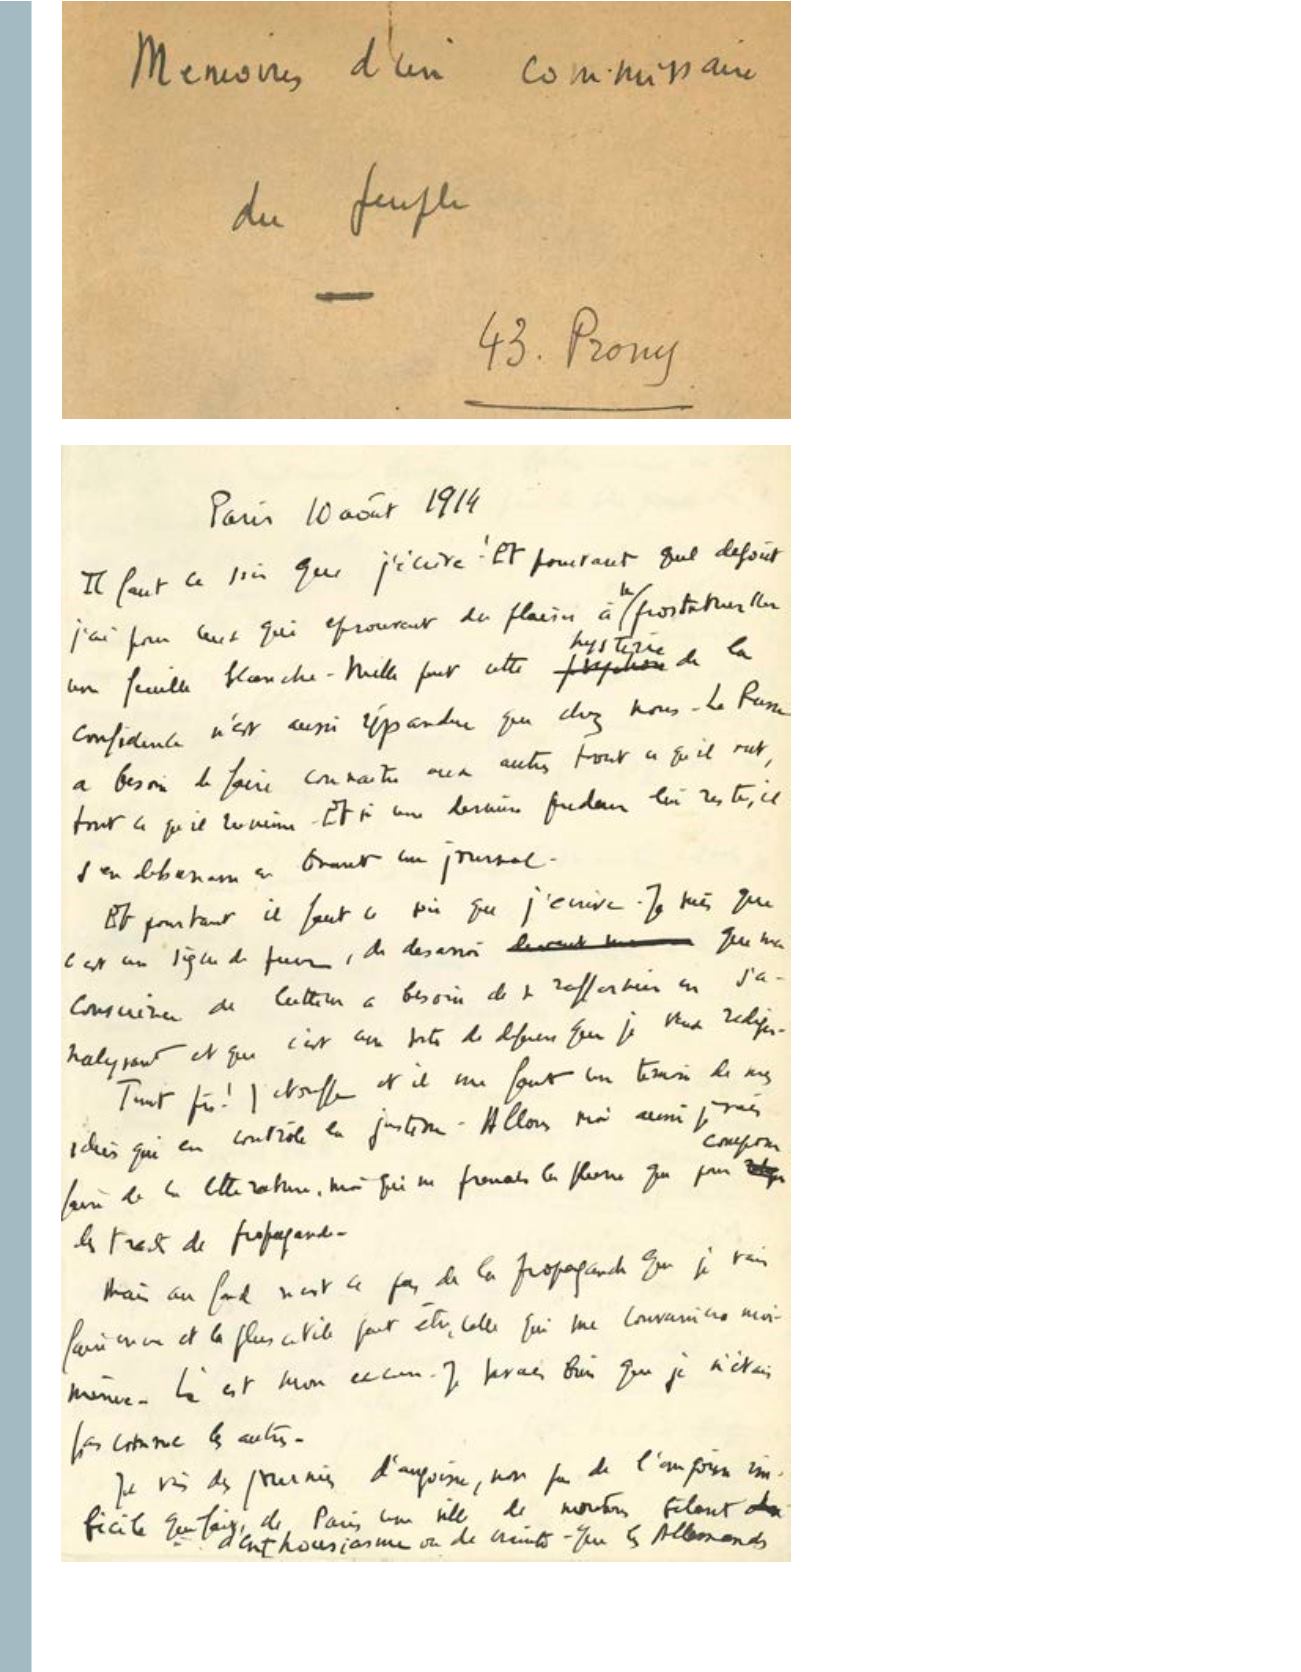 Memoires d'un commissaire
du peuple
43. Prony
Paris 10 août 1914
Il faut ce soir que j'écrive ! Et pourtant quel degoût
j'ai pour ceux qui eprouvent du plaisir à se prostituer sur
une feuille blanche - Nulle part cette hysterie de la
confidence n'est aussi répandue que chez nous - Le Russe
a besoin de faire connaitre aux autres tout ce qu'il
tout ce qu'il rumine - Et si une dernière pudeur lui reste, il
s'en debarrasse en tenant un journal -
Et pourtant il faut ce soir que j'ecrive - Je sais que
c'est un signe de , de desarroi que ma
conscience de lutteur a besoin de se raffermir en s'a-
nalysant et que c'est une sorte de defense que je veux rediger -
Tant pis ! J'etouffe et il me faut un temoin de mes
idées qui en contrôle la justesse - Allons moi aussi je vais
faire de la litterature, moi qui ne prenais la plume que pour composer
les tracts de propagande -
Mais au fond n'est ce pas de la propagande que je vais
faire encore et la plus utile peut être, celle qui me convaincra moi-
même - Là est mon excuse - Je savais bien que je n'étais
pas comme les autres -
Je vis des journées d'angoisse, non pas de l'angoisse im-
bécile qui fait de Paris une ville de moutons bêlant
d'enthousiasme ou de crainte - Que les Allemands